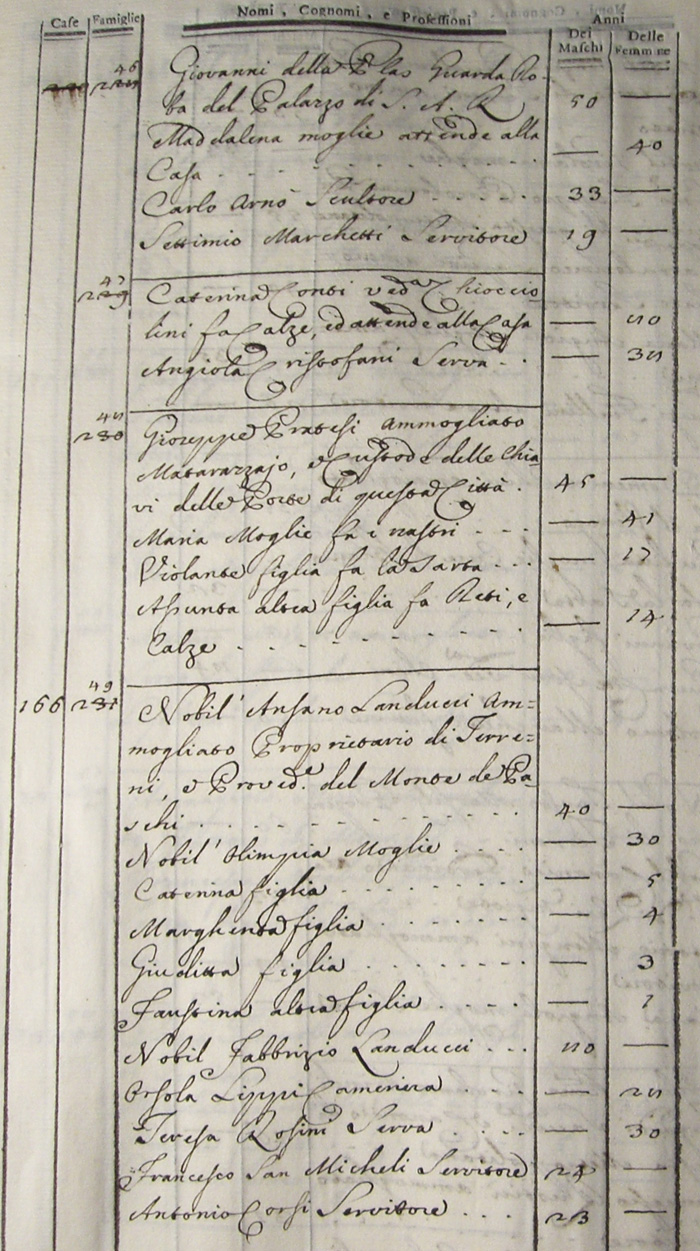 Case Famiglie Nomi, Cognomi, e Professioni Anni
Dei Maschi Delle Femmine
46
Giovanni della Guarda Ro-
ba del Palazzo di S. A. R. 50 —
Maddalena moglie attende alla
Casa - - - — 40
Carlo Arnò Scultore - - - 33 —
Settimio Marchetti Servitore 19 —
47
229 Caterina Conti ved.a Chioccio
lini fa Calze, ed attende alla Casa —
Angiola Cristofani Serva - - —
230 Gioseppe Pratesi Ammogliato
Matarazzajo, e Custode delle Chia
vi delle Porte di questa Città . 45 —
Maria Moglie fa i nastri - - - — 41
Violante figlia fa la Sarta - - - — 17
Assunta altra figlia fa Reti, e
Calze - - - — 14
49
166 231 Nobil' Ansano Landucci Am=
mogliato Proprietario di Terre=
ni, e Proved.e del Monte de Pa
schi - - - 40 —
Nobil' Olimpia Moglie - - - — 30
Caterina figlia - - - — 5
Margherita figlia - - - — 4
Giuditta figlia - - - — 3
Faustina altra figlia - - - — 1
Nobil Fabbrizio Landucci - - - —
Orsola Lippi Cameriera - - - —
Teresa Rosini Serva - - - — 30
Francesco San Micheli Servitore 24 —
Antonio Corsi Servitore - - - 23 —